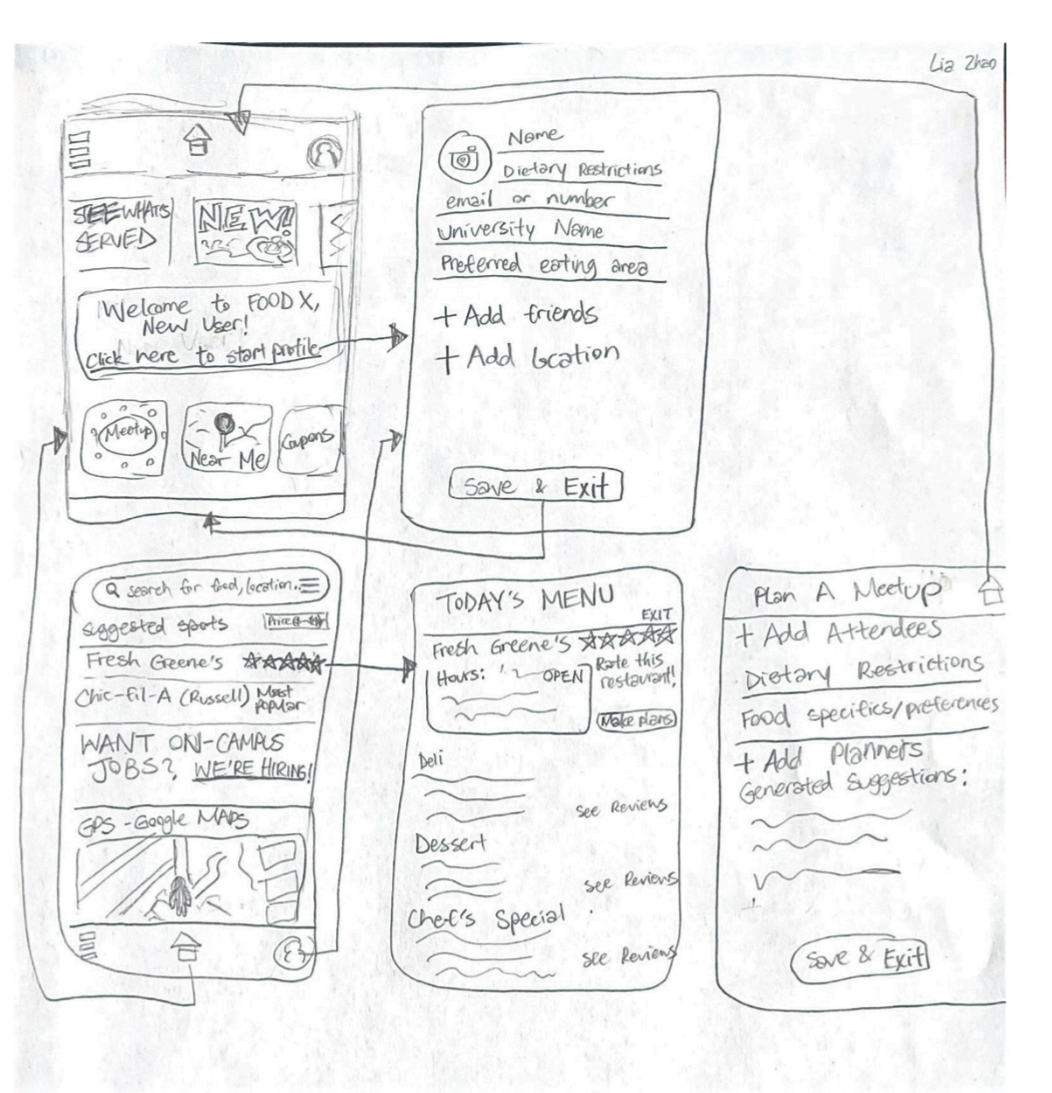 Lia Zhao
SEE WHATS
SERVED
NEW!
Welcome to FOOD X,
New User!
Click here to start profile
Meetup
Near Me
Coupons
Name
Dietary Restrictions
email or number
University Name
Preferred eating area
+ Add friends
+ Add location
Save & Exit
search for food, location,
suggested spots
Fresh Greene's
Chic-Fil-A (Russell) Most
Popular
WANT ON-CAMPUS
JOBS? WE'RE HIRING!
GPS - Google MAPS
TODAY'S MENU
EXIT
Fresh Greene's
Hours: OPEN
Rate this
restaurant!
Make plans
Deli
See Reviews
Dessert
see Reviews
Chef's Special
see Reviews
Plan A Meetup
+ Add Attendees
Dietary Restrictions
Food specifics/preferences
+ Add Planners
Generated Suggestions:
Save & Exit